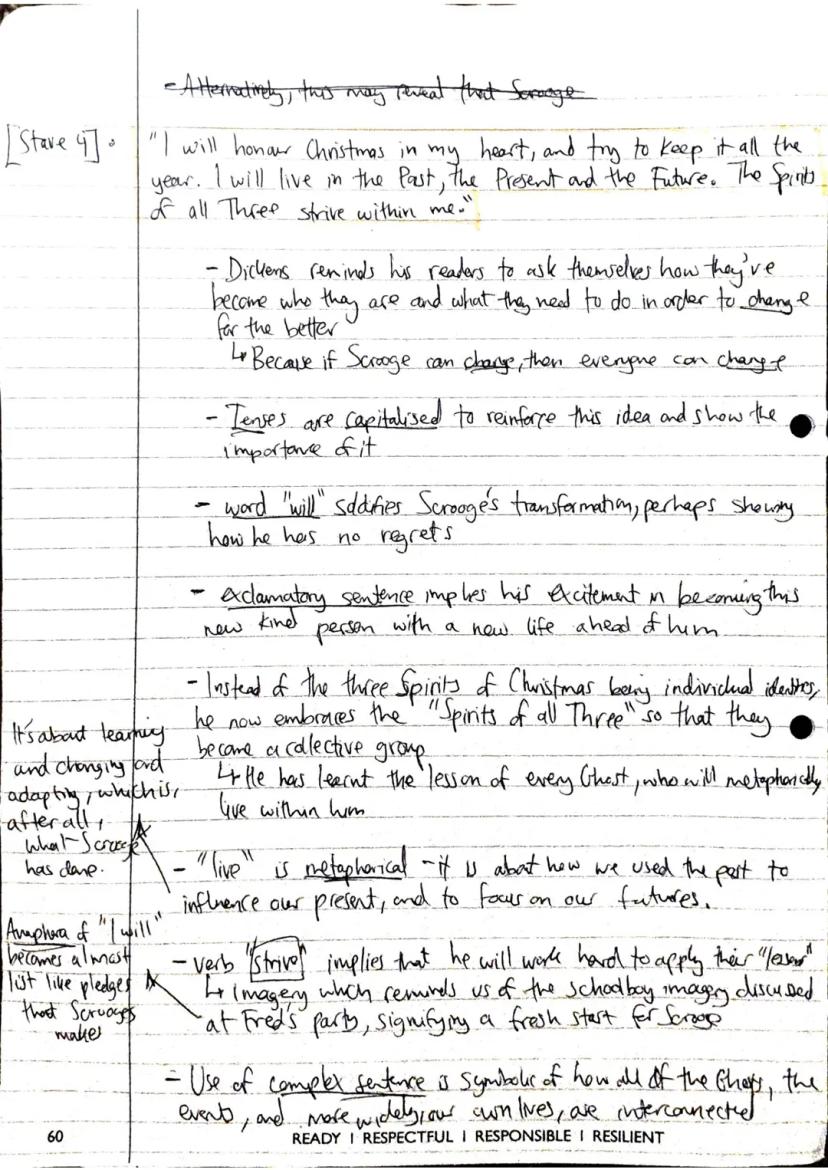 - Alternatively, this may reveal that Scrooge
[Stave 4].
"I will honour Christmas in my heart, and try to keep it all the
year. I will live in the Past, the Present and the Future. The Spirits
of all Three strive within me."
- Dickens reminds his readers to ask themselves how they've
become who they are and what they need to do in order to change
for the better
↳ Because if Scrooge can change, then everyone can change
- Tenses are capitalised to reinforce this idea and show the
importance of it
- word "will" solidifies Scrooge's transformation, perhaps showing
how he has no regrets
- exclamatory sentence implies his excitement in becoming this
new kind person with a new life ahead of him
- Instead of the three Spirits of Christmas being individual identities,
he now embraces the "Spirits of all Three" so that they
become a collective group
↳ He has learnt the lesson of every Ghost, who will metaphorically
live within him
It's about learning
and changing and
adapting, which is,
after all,
what Scrooge
has done.
- "live" is metaphorical - it is about how we used the past to
influence our present, and to focus on our futures.
Anaphora of "I will"
becomes almost
list like pledges
that Scrooge
makes
- verb "strive" implies that he will work hard to apply their "lesson"
↳ Imagery which reminds us of the schoolboy imagery discussed
at Fred's party, signifying a fresh start for Scrooge
- Use of complex sentence is symbolic of how all of the Ghosts, the
events, and more widely, our own lives, are interconnected
60
READY | RESPECTFUL | RESPONSIBLE | RESILIENT